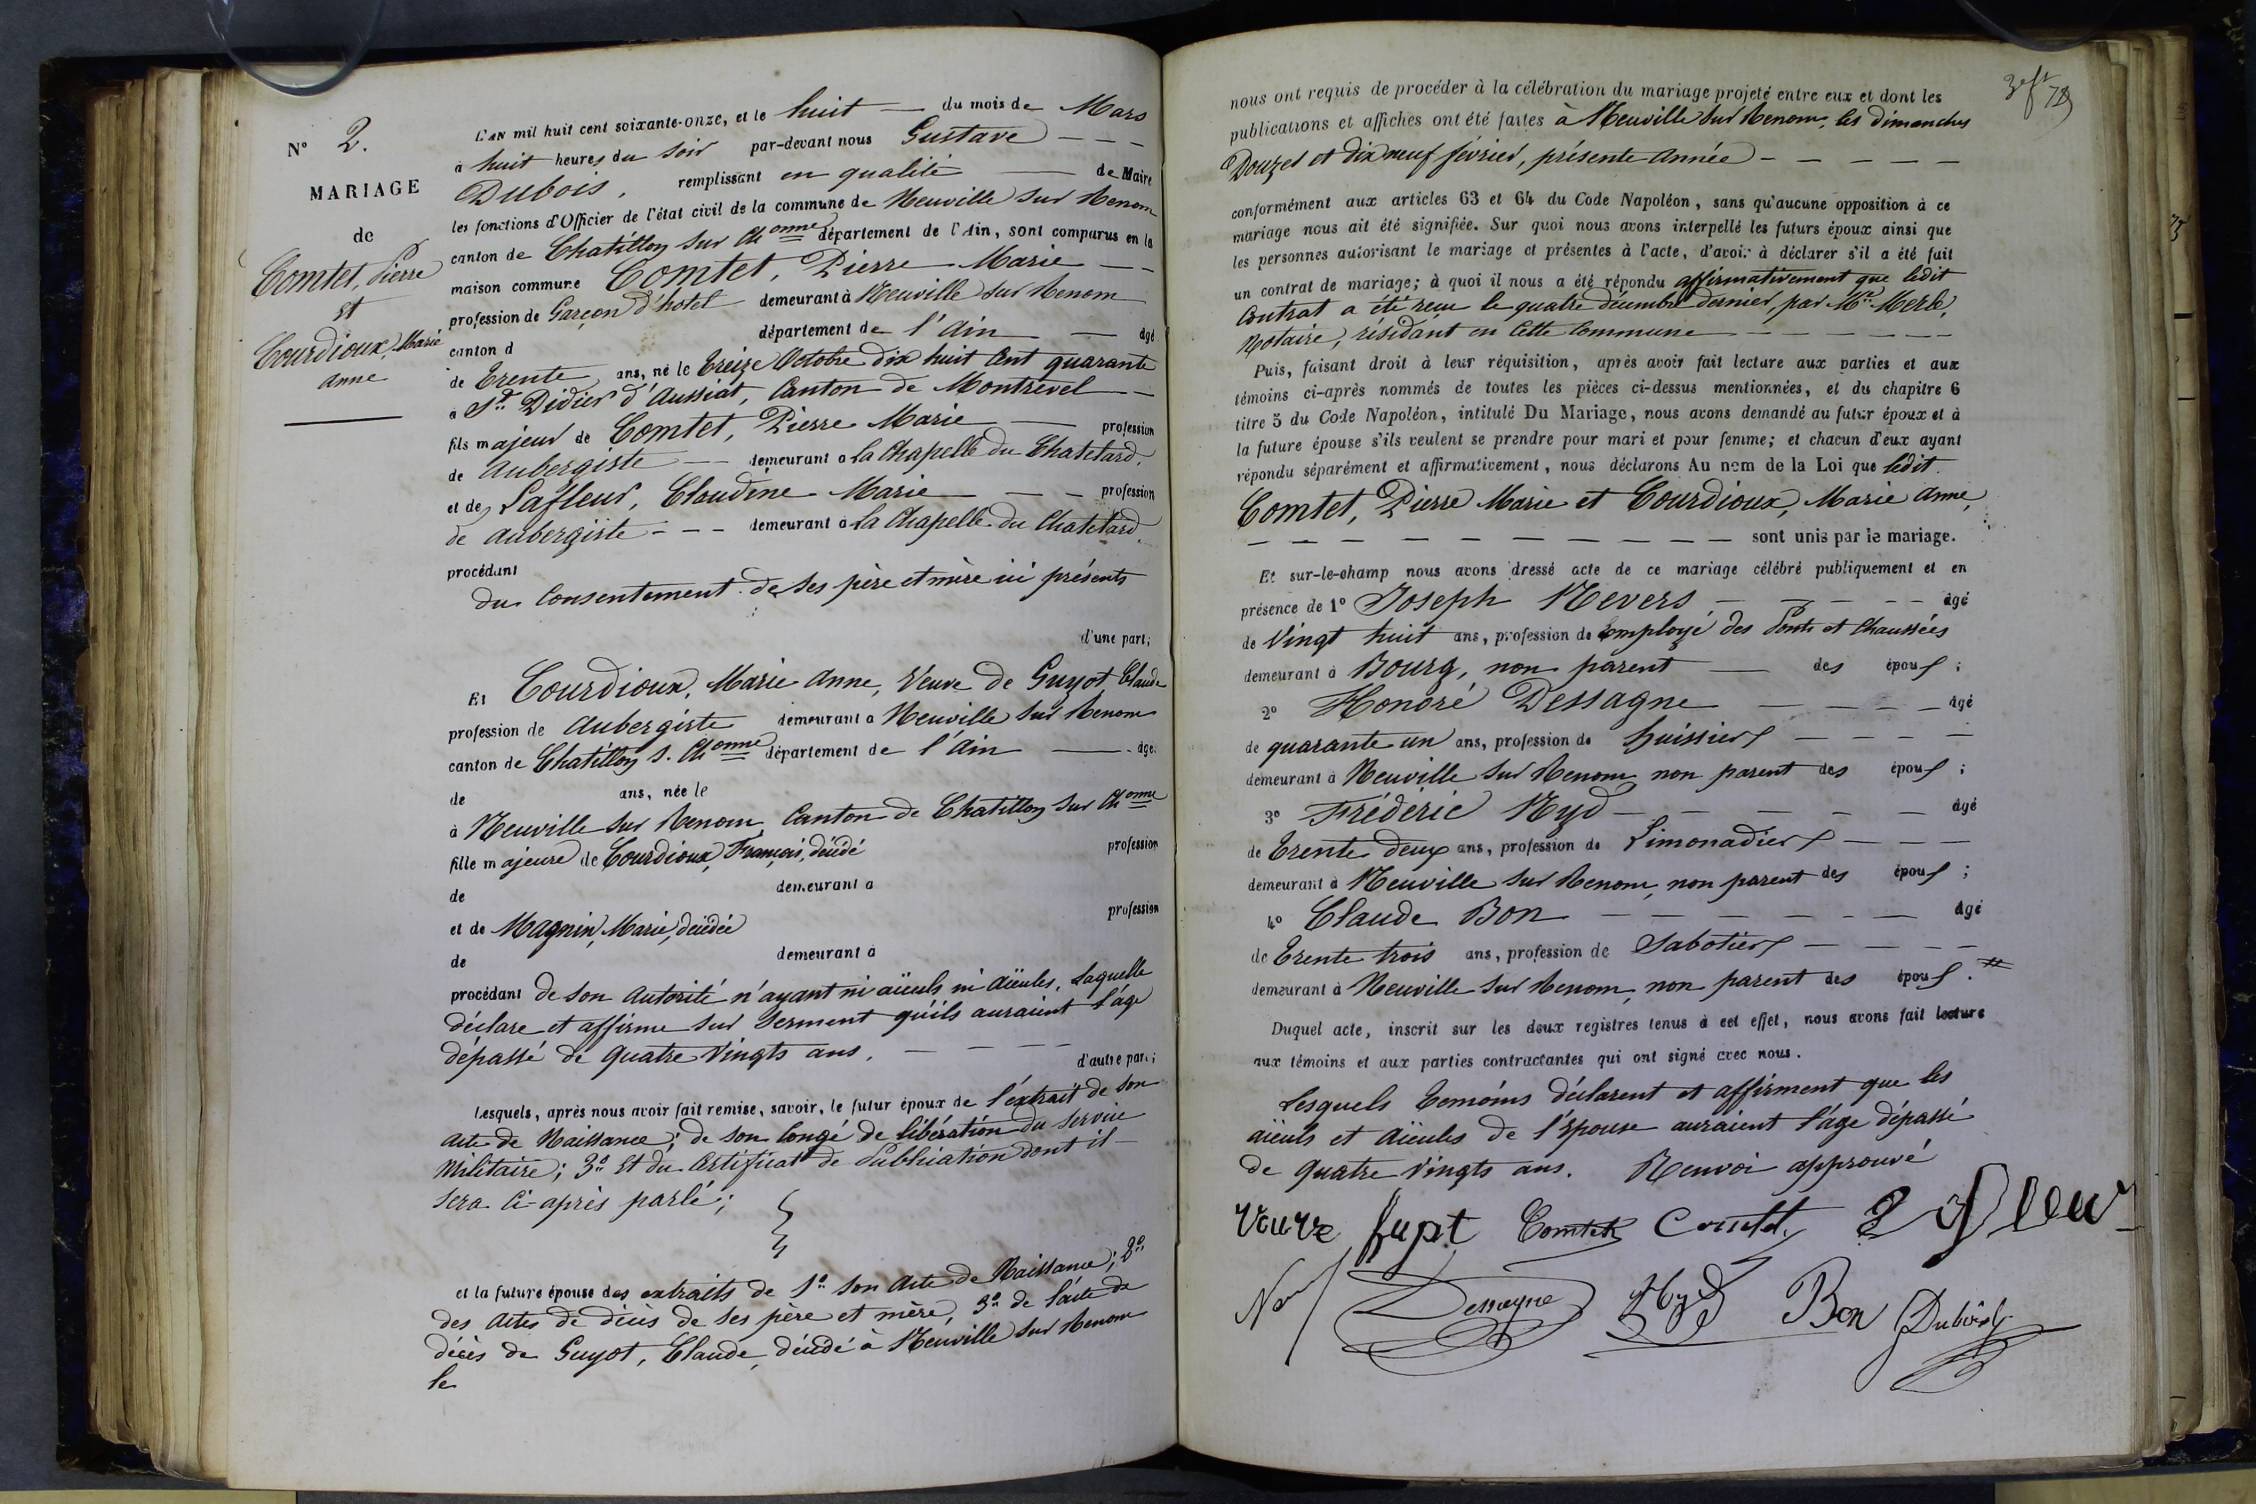 N° 2.
MARIAGE
de
Comtet, Pierre
et
Courdioux, Marie
anne
L'AN mil huit cent soixante-onze, et le huit — du mois de Mars
à huit heures du soir par-devant nous Gustave — — —
Dubois, remplissant en qualité — de Maire
les fonctions d'Officier de l'état civil de la commune de Neuville sur Renom
canton de Chatillon sur Ch^onne département de l'Ain, sont comparus en la
maison commune Comtet, Pierre Marie — —
profession de Garçon d'hotel demeurant à Neuville sur Renom
canton d département de l'Ain — âgé
de Trente ans, né le treize Octobre dix huit cent quarante
à St Didier d'Aussiat, Canton de Montrevel —
fils majeur de Comtet, Pierre Marie — profession
de aubergiste — demeurant à la Chapelle du Chatelard,
et de Lafleur, Claudine Marie — — profession
de aubergiste - - - demeurant à la Chapelle du Chatelard,
procédant
du Consentement de ses père et mère ici présents
d'une part;
Et Courdioux, Marie anne, Veuve de Guyot Claude
profession de aubergiste demeurant à Neuville sur Renom
canton de Chatillon s. Ch^onne département de l'Ain — âgée
de ans, née le
à Neuville sur Renom, Canton de Chatillon sur Ch^onne
fille majeure de Courdioux, François, décédé profession
de demeurant à
et de Magnin, Marie, décédée profession
de demeurant à
procédant de son autorité n'ayant ni aïeuls ni aïeules, laquelle
déclare et affirme sur serment qu'ils auraient l'âge
dépassé de quatre vingts ans. — — — d'autre part;
Lesquels, après nous avoir fait remise, savoir, le futur époux de l'extrait de son
acte de Naissance; de son congé de libération du service
Militaire; 3° Et du Certificat de Publication dont il
sera ci-après parlé;
et la future épouse des extraits de 1° son acte de Naissance; 2°
des actes de décès de ses père et mère, 3° de l'acte de
décès de Guyot, Claude, décédé à Neuville sur Renom
le
nous ont requis de procéder à la célébration du mariage projeté entre eux et dont les
publications et affiches ont été faites à Neuville sur Renom, les dimanches
Douze et dix neuf février, présente année - — — — —
conformément aux articles 63 et 64 du Code Napoléon, sans qu'aucune opposition à ce
mariage nous ait été signifiée. Sur quoi nous avons interpellé les futurs époux ainsi que
les personnes autorisant le mariage et présentes à l'acte, d'avoir à déclarer s'il a été fait
un contrat de mariage; à quoi il nous a été répondu affirmativement que ledit
Contrat a été reçu le quatre décembre dernier, par Me Merle,
Notaire, résidant en cette Commune — — — — —
Puis, faisant droit à leur réquisition, après avoir fait lecture aux parties et aux
témoins ci-après nommés de toutes les pièces ci-dessus mentionnées, et du chapitre 6
titre 5 du Code Napoléon, intitulé Du Mariage, nous avons demandé au futur époux et à
la future épouse s'ils veulent se prendre pour mari et pour femme; et chacun d'eux ayant
répondu séparément et affirmativement, nous déclarons Au nom de la Loi que ledit
Comtet, Pierre Marie et Courdioux, Marie anne,
— — — — — — — — — sont unis par le mariage.
Et sur-le-champ nous avons dressé acte de ce mariage célébré publiquement et en
présence de 1° Joseph Nevers — — — — âgé
de Vingt huit ans, profession de Employé des Ponts et Chaussées
demeurant à Bourg, non parent — des épou ;
2° Honoré Dessagne — — — — âgé
de quarante un ans, profession de huissier — — — —
demeurant à Neuville sur Renom, non parent des épou ;
3° Frédéric Nyd — — — — — âgé
de Trente deux ans, profession de Limonadier — — —
demeurant à Neuville sur Renom, non parent des épou ;
4° Claude Bon — — — — — — âgé
de Trente trois ans, profession de Sabotier — — — —
demeurant à Neuville sur Renom, non parent des épou . #
Duquel acte, inscrit sur les deux registres tenus à cet effet, nous avons fait lecture
aux témoins et aux parties contractantes qui ont signé avec nous.
# Lesquels témoins déclarent et affirment que les
aïeuls et aïeules de l'épouse auraient l'âge dépassé
de quatre vingts ans. Renvoi approuvé
Comtet Comtet
Dessagne Nyd Bon Dubois